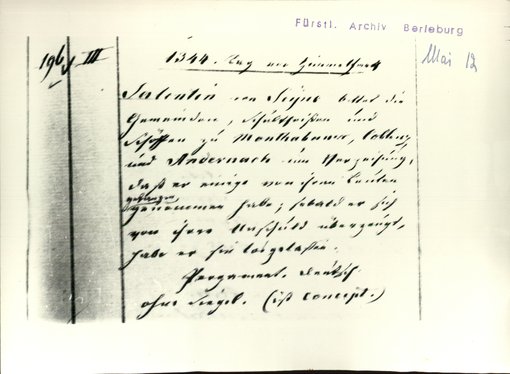 Fürstl. Archiv Berleburg
Mai 12
196 III
1344. Tag vor Himmelfart
Salentin von Seyne bittet die
Gemeinden, Schultheißen und
Schöffen zu Monthabaur, Coblenz
und Andernach um Verzeihung,
daß er einige von ihren Leuten
gefangen
genommen habe; sobald er sich
von ihrer Unschuld überzeugt,
habe er sie losgelassen.
Pergament. Deutsch.
ohne Siegel. (ist Concept.)